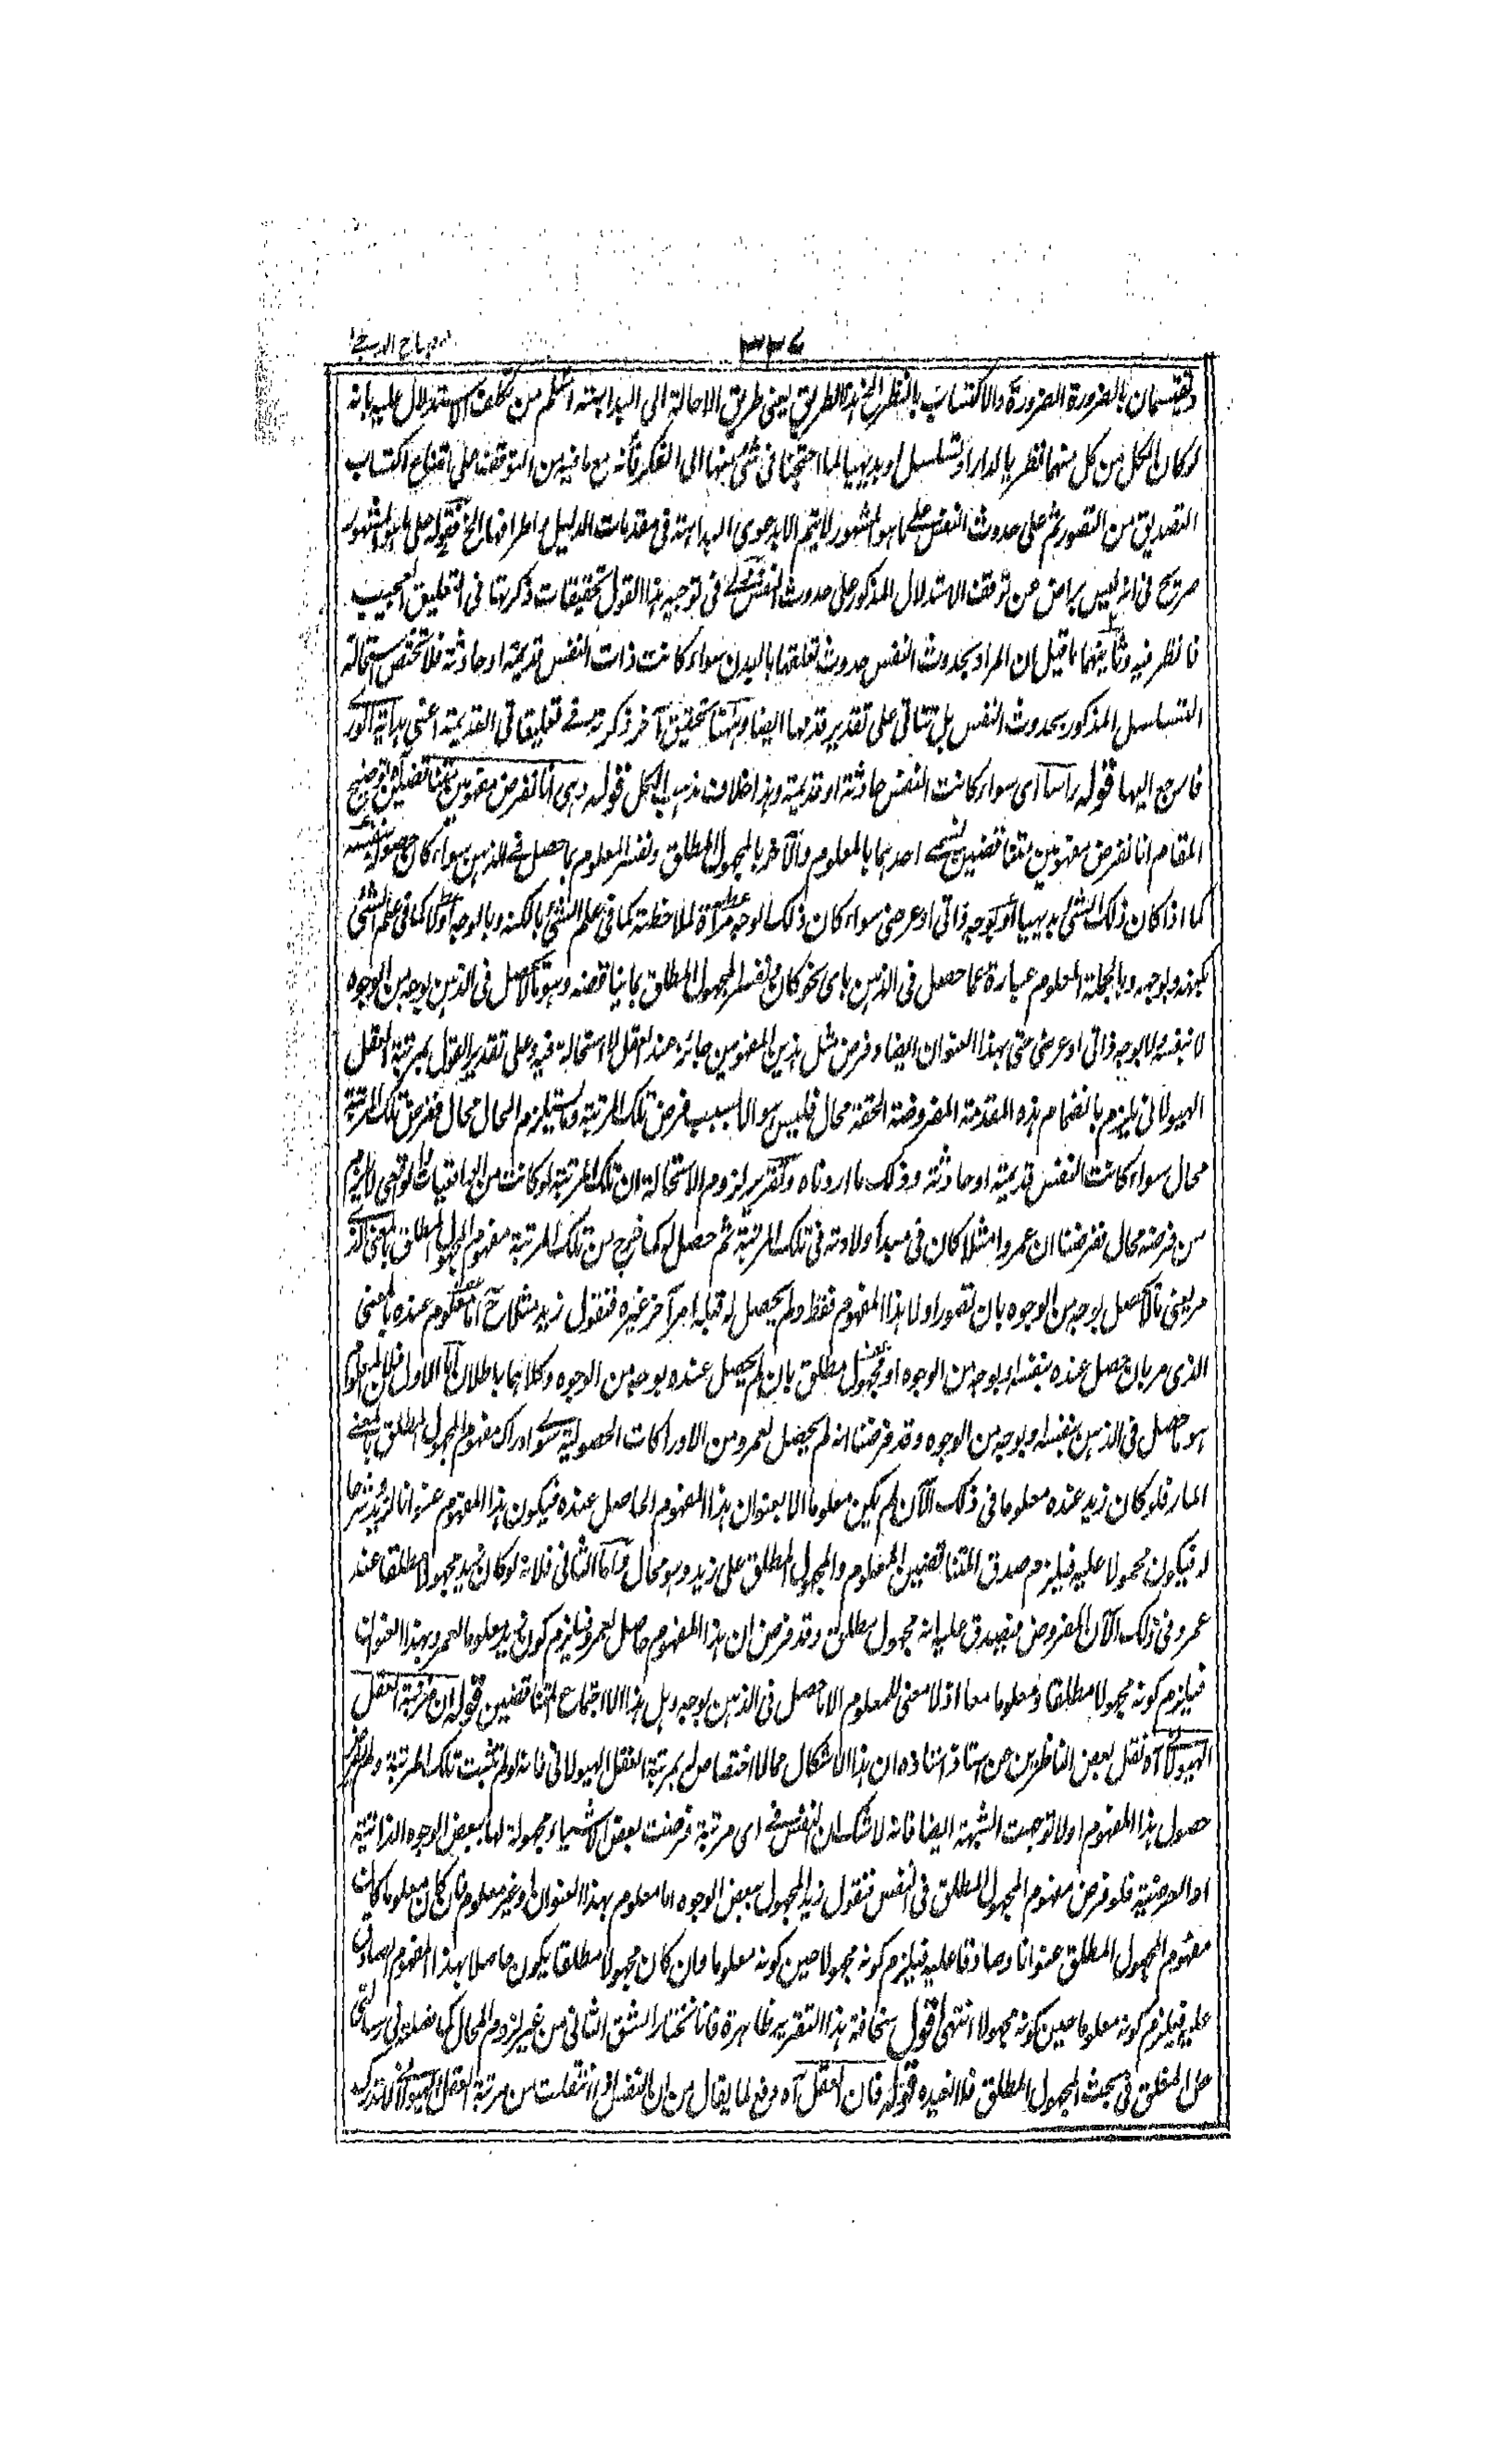 ٣٣٦
ويقتسمان بالضرورة الضرورة والاكتساب بالنظر الخ هذا الطريق يعني طريق الاحالة الى البداهة اسلم من تكلف الاستدلال عليه بانه
لو كان الكل من كل منهما نظريا لدار او تسلسل او بديهيا لما احتجنا في شئ منهما الى الفكر فانه مع ما فيه من التوقف على امتناع اكتساب
التصديق من التصور ثم على حدوث النفس على ما هو المشهور لا يتم الا بدعوى البداهة في مقدمات الدليل واطرافها الخ فقوله على ما هو المشهور
صريح في انه ليس براض عن توقف الاستدلال المذكور على حدوث النفس في توجيه هذا القول تحقيقات ذكرتها في التعليق العجيب
فانظر فيه وثانيهما ما قيل ان المراد بحدوث النفس حدوث تعلقها بالبدن سواء كانت ذات النفس قديمة او حادثة فلا تختص استحالة
التسلسل المذكور بحدوث النفس بل تتأتى على تقدير قدمها ايضا وههنا تحقيق آخر ذكرته في تعليقاتي القديمة اعني هداية الورى
فارجع اليها قوله راسا اى سواء كانت النفس حادثة او قديمة وهذا خلاف مذهب الكل قوله وهى انا نفرض مفهومين متناقضين آه توضيح
المقام انا نفرض مفهومين متناقضين نسمى احدهما بالمعلوم والآخر بالمجهول المطلق ونفسر المعلوم بما حصل في الذهن سواء كان حصوله بنفسه
كما اذا كان ذلك الشئ بديهيا او بوجه ذاتى او عرضى سواء كان ذلك الوجه مرآة لملاحظته كما في علم الشئ بالكنه وبالوجه اولا كما في علم الشئ
بكنهه وبوجهه وبالجملة المعلوم عبارة عما حصل في الذهن باى نحو كان ونفسر المجهول المطلق بما يناقضه وهو ما لا يحصل في الذهن بوجه من الوجوه
لا بنفسه ولا بوجه ذاتى او عرضى حتى بهذا العنوان ايضا وفرض مثل هذين المفهومين جائز عند العقل لا استحالة فيه وعلى تقدير القول بمرتبة العقل
الهيولانى يلزم بانضمام هذه المقدمة المفروضة الحقة محال فليس هو الا بسبب فرض تلك المرتبة وما يستلزم المحال محال ففرض تلك المرتبة
محال سواء كانت النفس قديمة او حادثة وذلك ما اردناه وتقرير لزوم الاستحالة ان تلك المرتبة لو كانت من الواقعيات لم يلزم
من فرضه محال فنفرضنا ان عمروا مثلا كان في مبدأ ولادته في تلك المرتبة ثم حصل له كما خرج من تلك المرتبة مفهوم المجهول المطلق بالمعنى الذى
مر يعنى ما لا يحصل بوجه من الوجوه بان تصور اولا هذا المفهوم فقط ولم يحصل له قبله امر آخر غيره فنقول زيد مثلا ح اما معلوم عنده بالمعنى
الذى مر بان حصل عنده بنفسه او بوجه من الوجوه او مجهول مطلق بان لم يحصل عنده بوجه من الوجوه وكلاهما باطلان اما الاول فلان المعلوم
هو ما حصل في الذهن بنفسه او بوجه من الوجوه وقد فرضنا انه لم يحصل لعمرو من الادراكات الحصولية سوى ادراك مفهوم المجهول المطلق بالمعنى
المار فلو كان زيد عنده معلوما في ذلك الآن لم يكن معلوما الا بعنوان هذا المفهوم الحاصل عنده فيكون هذا المفهوم عنوانا لزيد وشرحا
له فيكون محمولا عليه فيلزم صدق المتناقضين المعلوم والمجهول المطلق على زيد وهو محال واما الثاني فلانه لو كان زيد مجهولا مطلقا عند
عمرو في ذلك الآن المفروض فيصدق عليه انه مجهول مطلق وقد فرض ان هذا المفهوم حاصل لعمرو فيلزم كون زيد معلوما لعمرو بهذا العنوان
فيلزم كونه مجهولا مطلقا ومعلوما معا اذ لا معنى للمعلوم الا ما حصل في الذهن بوجه وهل هذا الا اجتماع المتناقضين قوله ان مرتبة العقل
الهيولانى آه نقل بعض الناظرين عن استاذ استاذه ان هذا الاشكال مما لا اختصاص له بمرتبة العقل الهيولانى فانه لو لم تثبت تلك المرتبة ولم يفرض
حصول هذا المفهوم اولا توجهت الشبهة ايضا فانه لا شك ان للنفس في اى مرتبة فرضت بعض الاشياء مجهولة لها ببعض الوجوه الذاتية
او العرضية فلو فرض مفهوم المجهول المطلق في النفس فنقول زيد المجهول ببعض الوجوه اما معلوم بهذا العنوان او غير معلوم فان كان معلوما كان
مفهوم المجهول المطلق عنوانا وصادقا عليه فيلزم كونه مجهولا حين كونه معلوما وان كان مجهولا مطلقا يكون حاصلا بهذا المفهوم الصادق
عليه فيلزم كونه معلوما حين كونه مجهولا انتهى اقول سخافة هذا التقرير ظاهرة فانا نختار الشق الثاني من غير لزوم المحال كما فصلته في رسالتى
حل المغلق في بحث المجهول المطلق فلا نعيده قوله فان العقل آه دفع لما يقال من ان النفس اذا انتقلت من مرتبة العقل الهيولانى لا تدرك